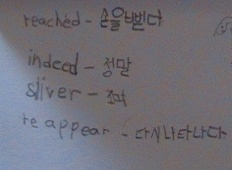 reached - 손을뻗다
indeed - 정말
sliver - 조각
re appear - 다시나타나다